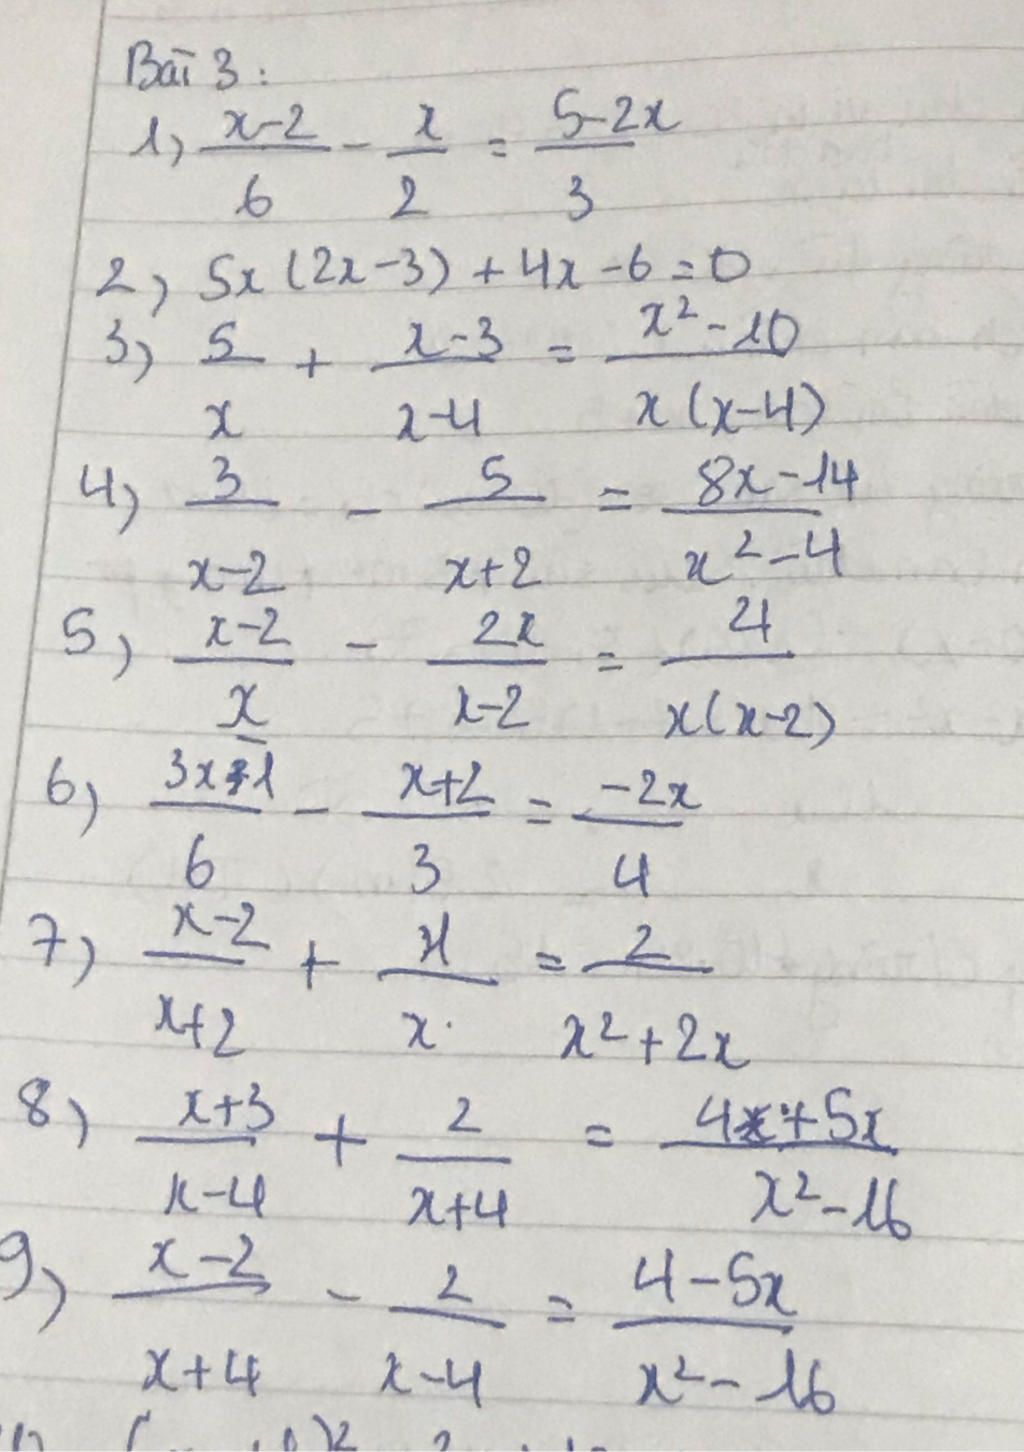 Bài 3:
1, (x-2)/6 - x/2 = (5-2x)/3
2, 5x(2x-3)+4x-6=0
3, 5/x + (x-3)/(x-4) = (x²-10)/(x(x-4))
4, 3/(x-2) - 5/(x+2) = (8x-14)/(x²-4)
5, (x-2)/x - 2x/(x-2) = 4/(x(x-2))
6, (3x-1)/6 - (x+2)/3 = -2x/4
7, (x-2)/(x+2) + /x = 2/(x²+2x)
8, (x+3)/(x-4) + 2/(x+4) = (4+5x)/(x²-16)
9, (x-2)/(x+4) - 2/(x-4) = (4-5x)/(x²-16)